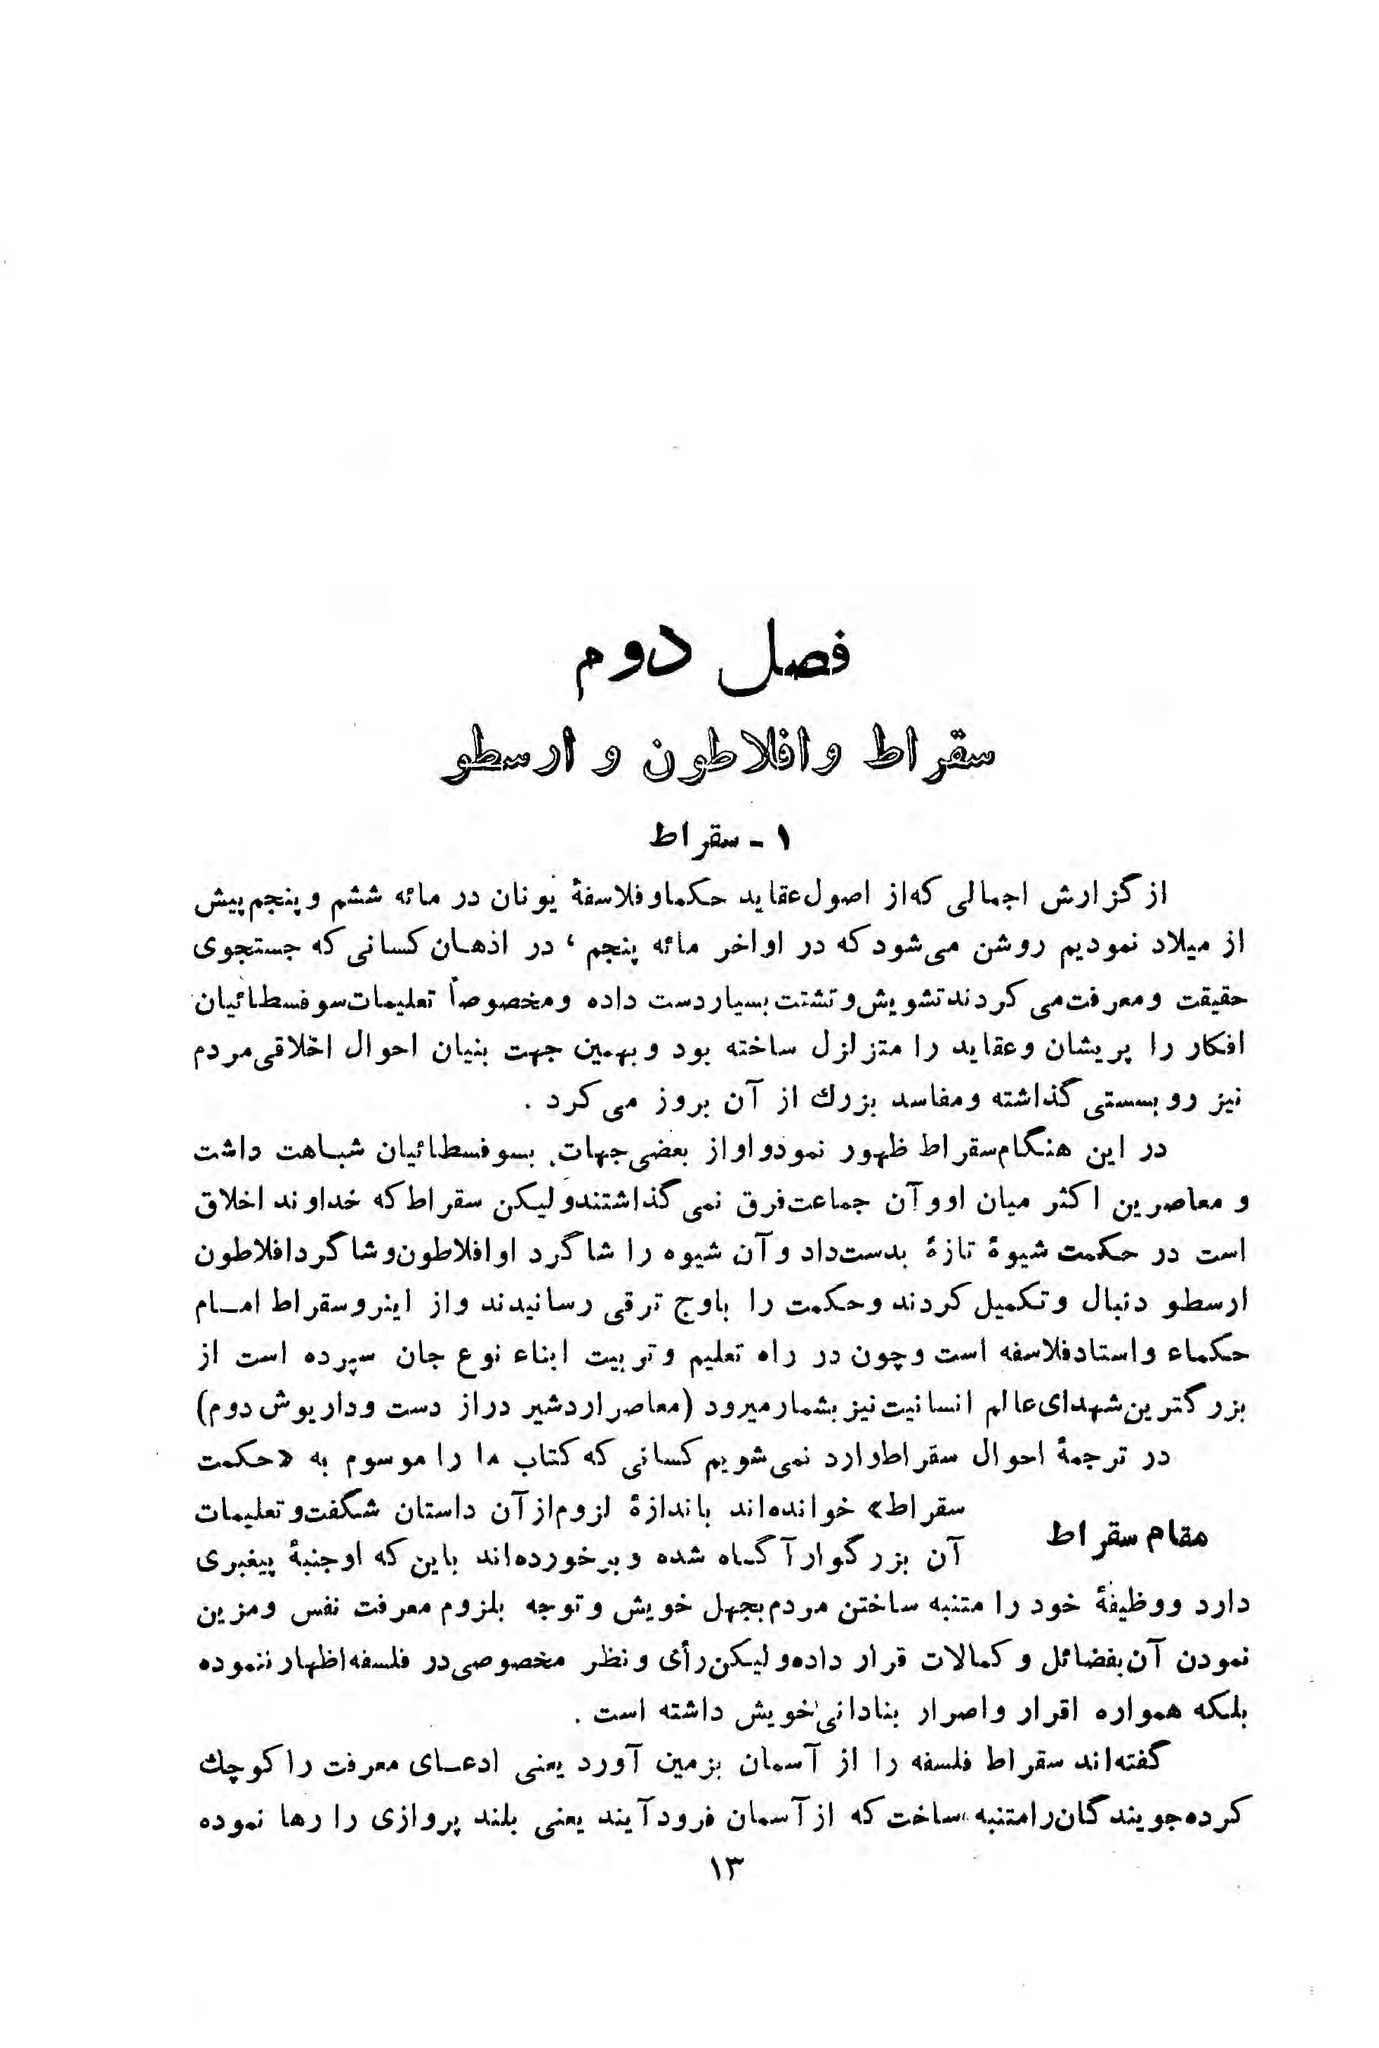 فصل دوم
سقراط وافلاطون و ارسطو
۱ - سقراط
از گزارش اجمالی که از اصول عقاید حکما و فلاسفهٔ یونان در مائه ششم و پنجم پیش
از میلاد نمودیم روشن می‌شود که در اواخر مائه پنجم ، در اذهان کسانی که جستجوی
حقیقت و معرفت می کردند تشویش و تشتت بسیار دست داده و مخصوصاً تعلیمات سوفسطائیان
افکار را پریشان و عقاید را متزلزل ساخته بود و بهمین جهت بنیان احوال اخلاقی مردم
نیز رو بسستی گذاشته و مفاسد بزرك از آن بروز می‌کرد .
در این هنگام سقراط ظهور نمود و او از بعضی جهات بسوفسطائیان شباهت داشت
و معاصرین اکثر میان او و آن جماعت فرق نمی گذاشتند ولیکن سقراط که خداوند اخلاق
است در حکمت شیوهٔ تازهٔ بدست داد و آن شیوه را شاگرد او افلاطون و شاگرد افلاطون
ارسطو دنبال و تکمیل کردند و حکمت را باوج ترقی رسانیدند و از اینرو سقراط امام
حکماء و استاد فلاسفه است و چون در راه تعلیم و تربیت ابناء نوع جان سپرده است از
بزرگترین شهدای عالم انسانیت نیز بشمار میرود (معاصر اردشیر دراز دست و داریوش دوم)
در ترجمهٔ احوال سقراط وارد نمی‌شویم کسانی که کتاب ما را موسوم به «حکمت
مقام سقراط
سقراط» خوانده‌اند باندازهٔ لزوم از آن داستان شگفت و تعلیمات
آن بزرگوار آگاه شده و برخورده‌اند باین که او جنبهٔ پیغبری
دارد و وظیفهٔ خود را متنبه ساختن مردم بجهل خویش و توجه بلزوم معرفت نفس و مزین
نمودن آن بفضائل و کمالات قرار داده ولیکن رأی و نظر مخصوصی در فلسفه اظهار ننموده
بلکه همواره اقرار و اصرار بنادانی خویش داشته است .
گفته‌اند سقراط فلسفه را از آسمان بزمین آورد یعنی ادعای معرفت را کوچك
کرده جویندگان را متنبه ساخت که از آسمان فرود آیند یعنی بلند پروازی را رها نموده
۱۳